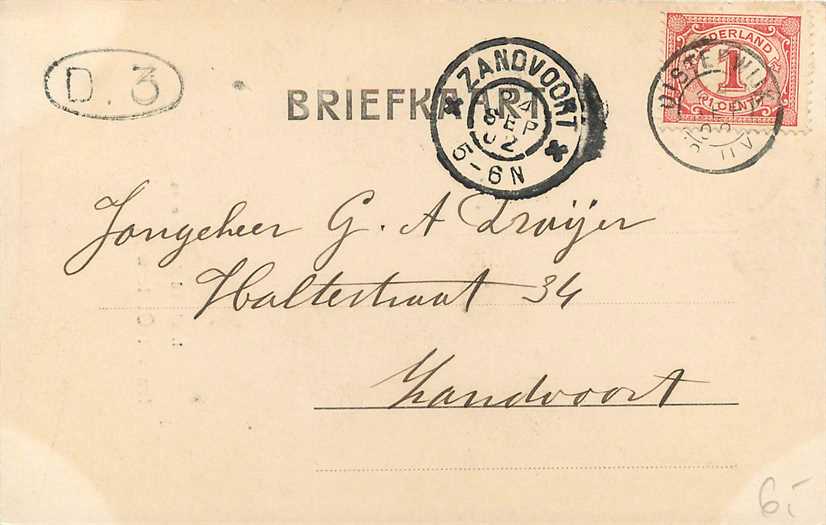 D. 3
BRIEFKAART
ZANDVOORT
24
SEP
02
5-6N
NEDERLAND
1
OISTERWIJK
11V
Jongeheer G. A
Haltestraat 34
Zandvoort
6,-